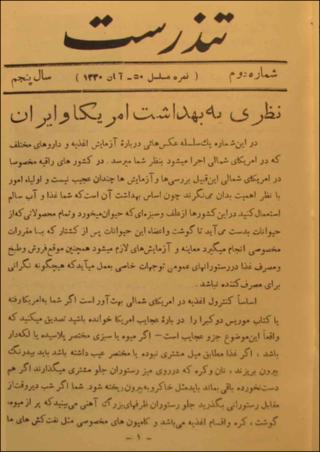 تندرست
شماره دوم ( نمره مسلسل ۵۰ - آبان ۱۳۳۰ ) سال پنجم
نظری به بهداشت امریکا و ایران
در این شماره یک سلسله عکس‌هائی درباره آزمایش اغذیه و داروهای مختلف
که در امریکای شمالی اجرا میشود بنظر شما میرسد. در کشور های راقیه مخصوصا
در امریکای شمالی این قبیل بررسی‌ها و آزمایش ها چندان عجیب نیست و اولیاء امور
با نظر اهمیت بدان می‌نگرند چون اساس بهداشت آن است که شما غذا و آب سالم
استعمال کنید در این کشورها از علف و سبزه‌ای که حیوان میخورد و تمام محصولاتی که از
حیوانات بدست می‌آید تا گوشت و اعضاء این حیوانات پس از کشتار که با مقررات
مخصوصی انجام میگیرد معاینه و آزمایش‌های لازم میشود همچنین موقع فروش و طبخ
ومصرف غذا در رستورانهای عمومی توجهات خاصی بعمل میآید که هیچگونه نگرانی
برای مصرف کننده نباشد.
اساساً کنترول اغذیه در امریکای شمالی بهت آور است اگر شما به امریکا رفته
یا کتاب موریس دو کبرا را در بارۀ عجایب امریکا خوانده باشید تصدیق میکنید که
واقعاً این موضوع جزو عجایب است - اگر میوه یا سبزی مختصر پلاسیده یا لکه‌دار
باشد، اگر غذا مطابق میل مشتری نبوده یا مختصر عیب داشته باشد باید بیدرنگ
بیرون بریزند، نان و کره که در روی میز رستوران جلو مشتری میگذارند اگر هم
دست نخورده باقی بماند باید مثل خاکروبه بیرون ریخته شود. شما اگر شب دیروقت از
مقابل رستورانی بگذرید جلو رستوران ظرفهای بزرگ آهنی می‌بینید که پر از میوه،
گوشت، کره و اقسام اغذیه می‌باشد و کامیون های مخصوصی مثل نفت کش های ما
- ۱ -